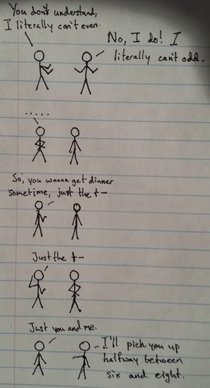 You don't understand,
I literally can't even.
No, I do! I
literally can't odd.
.....
So, you wanna get dinner
sometime, just the t—
Just the t—
Just you and me.
I'll pick you up
halfway between
six and eight.